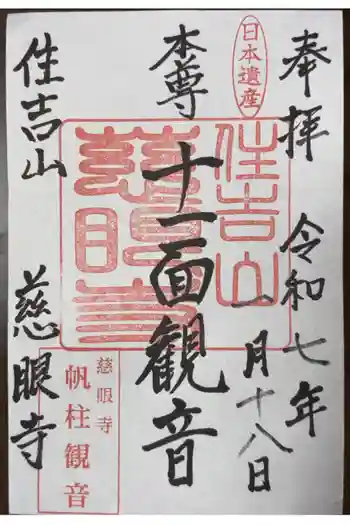 奉拝
令和七年
一月十八日
日本遺産
本尊
十一面観音
住吉山
慈眼寺
住吉山
慈眼寺
慈眼寺
帆柱観音